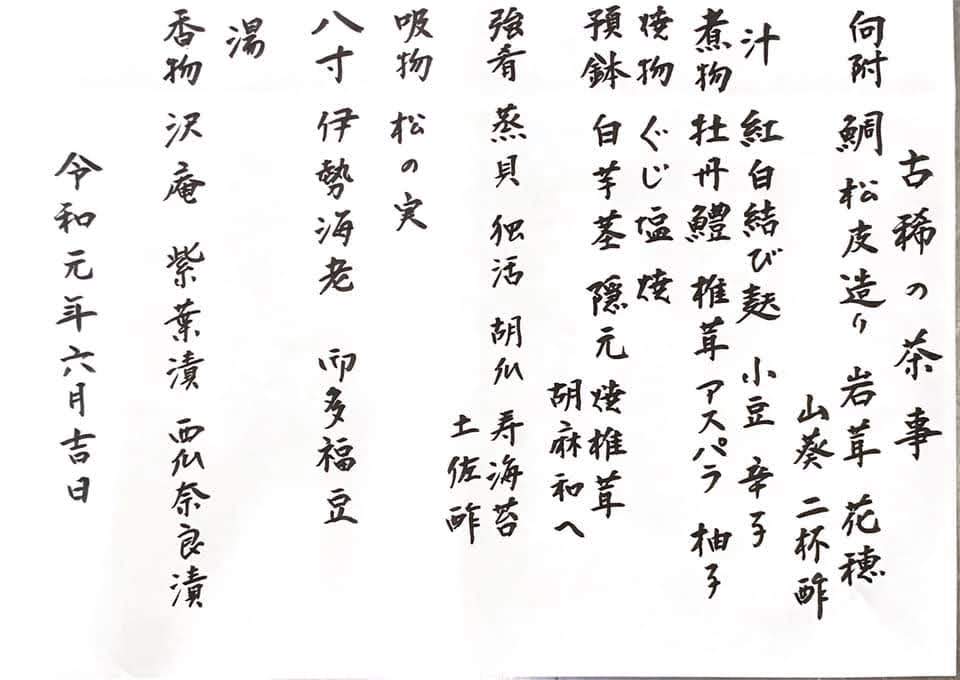 古稀の茶事
向附 鯛 松皮造り 岩茸 花穂
山葵 二杯酢
汁 紅白結び麸 小豆 辛子
煮物 牡丹鱧 椎茸 アスパラ 柚子
焼物 ぐじ塩焼
預鉢 白芋茎 隠元 焼椎茸
胡麻和へ
強肴 蒸貝 独活 胡瓜 寿海苔
土佐酢
吸物 松の実
八寸 伊勢海老 而多福豆
湯
香物 沢庵 紫葉漬 西瓜奈良漬
令和元年六月吉日